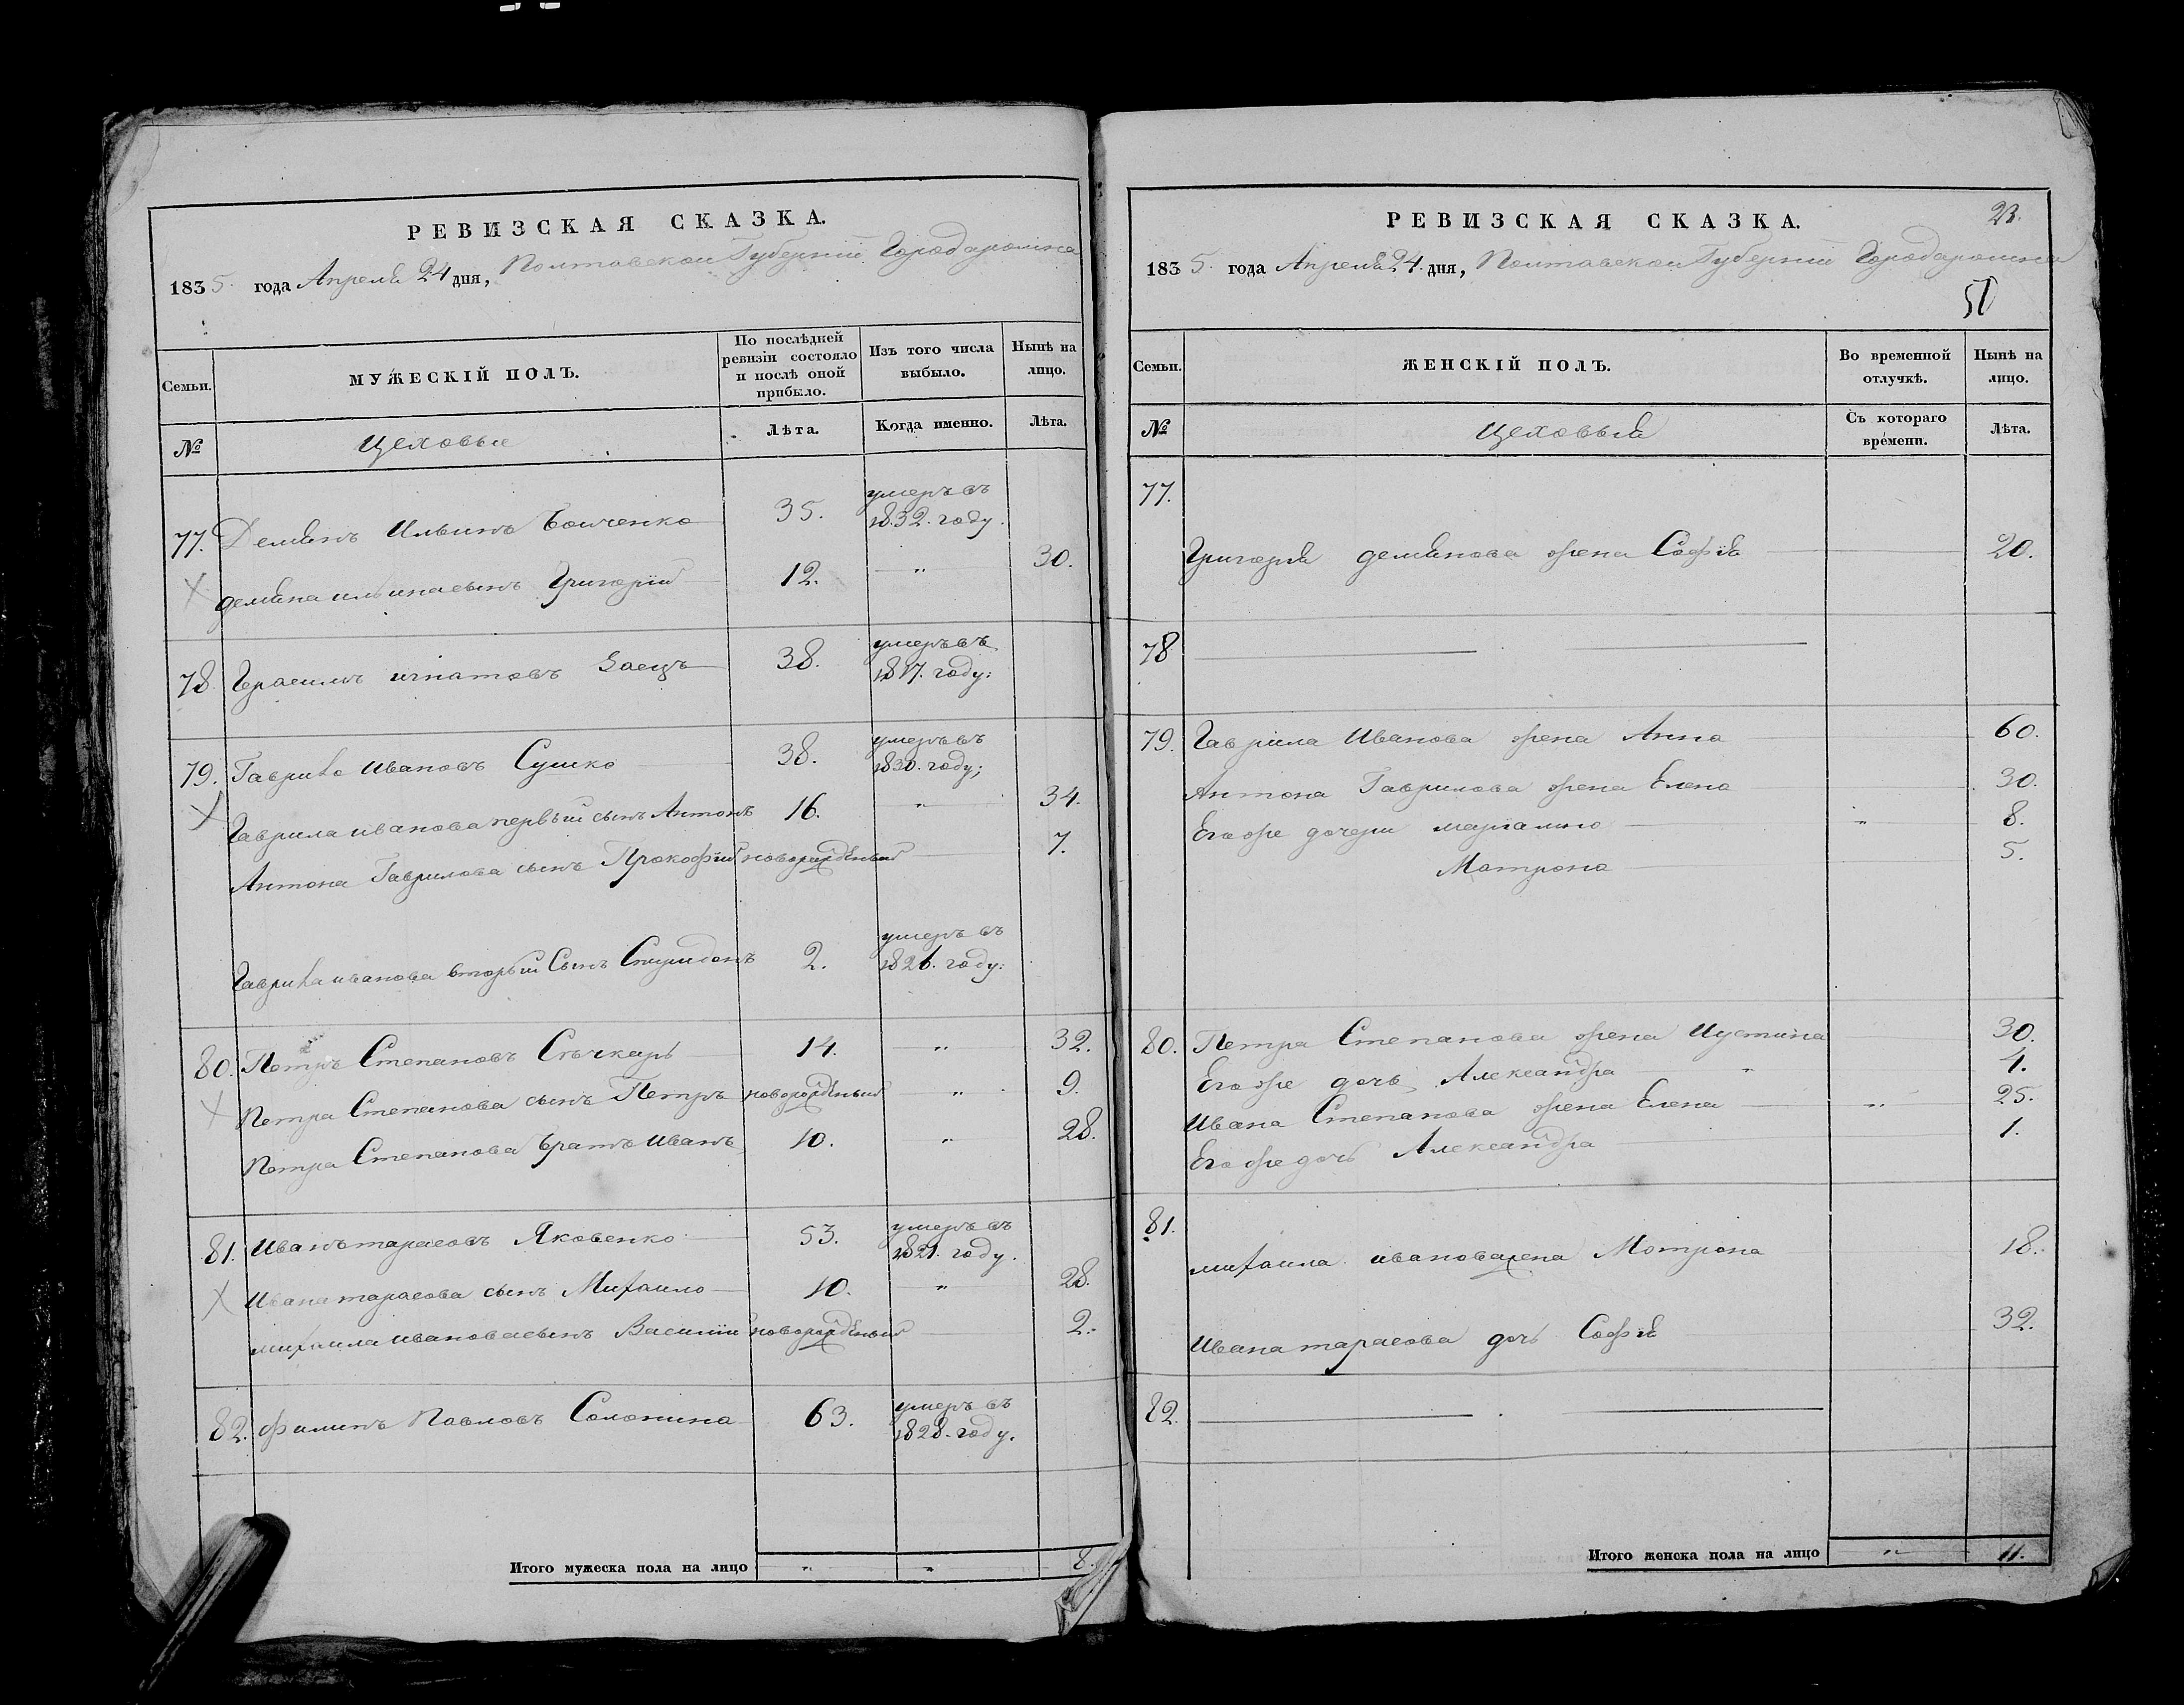 РЕВИЗСКАЯ СКАЗКА.
1835. года Апреля 24 дня, Полтавской Губернии Города
Семьи.
МУЖЕСКІЙ ПОЛЪ.
По послѣдней ревизіи состояло и послѣ оной прибыло.
Изъ того числа выбыло.
Нынѣ на лицо.
№
Цеховые
Лѣта.
Когда именно.
Лѣта.
77. Демянъ Ильинъ Бойченко 35. умеръ въ 1832. году.
демяна ильина сынъ Григорій 12. " 30.
78. Герасимъ игнатовъ Заецъ 38. умеръ въ 1817. году:
79. Гаврило Ивановъ Сушко 38. умеръ въ 1830. году;
Гаврила иванова первый сынъ Антонъ 16. " 34.
Антона Гаврилова сынъ Прокофій новорожденный 7.
Гаврила иванова вторый Сынъ 2. умеръ въ 1826. году:
80. Петръ Степановъ Сѣчкарь 14. " 32.
Петра Степанова сынъ Петръ новорожденный " 9.
Петра Степанова братъ Иванъ 10. " 28.
81. Иванъ тарасовъ Яковенко 53. умеръ въ 1821. году.
Ивана тарасова сынъ Михаило 10. " 28.
михаила иванова сынъ Василій новорожденный 2.
82. Филипъ Павловъ Солонина 63. умеръ въ 1828. году.
Итого мужеска пола на лицо " " 8.
23.
РЕВИЗСКАЯ СКАЗКА.
1835. года Апреля 24. дня, Полтавской Губернии Города
51
Семьи.
ЖЕНСКІЙ ПОЛЪ.
Во временной отлучкѣ.
Нынѣ на лицо.
№
Цеховыя
Съ котораго времени.
Лѣта.
77.
Григорія демянова жена Софія 20.
78
79. Гаврила Иванова жена Анна 60.
Антона Гаврилова жена Елена 30.
Его же дочери " 8.
Мотрона 5.
80. Петра Степанова жена Иустина 30.
Его же дочь Александра " 4.
Ивана Степанова жена Елена " 25.
Его же дочь Александра 1.
81.
михаила иванова жена Мотрона 18.
Ивана тарасова дочь Софія 32.
82.
Итого женска пола на лицо " 11.